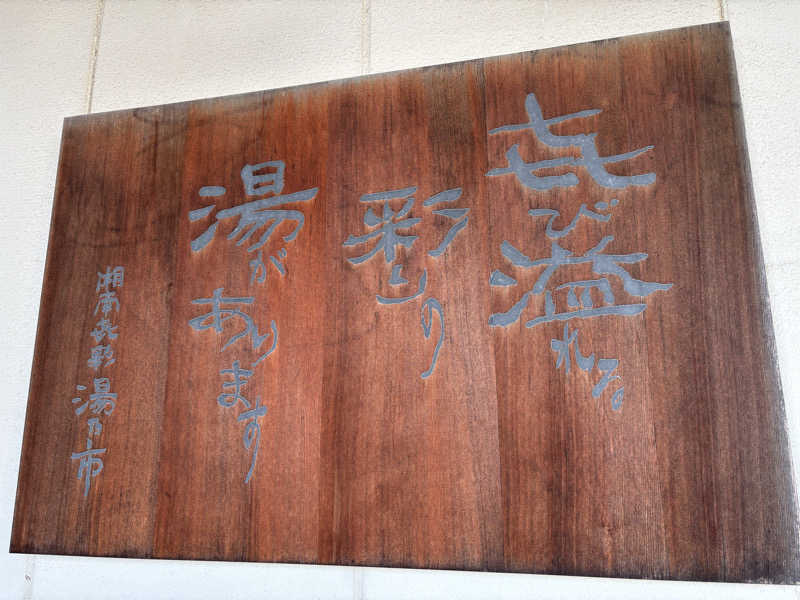 㐂び溢れる
彩りの
湯があります
湘南㐂彩 湯乃市